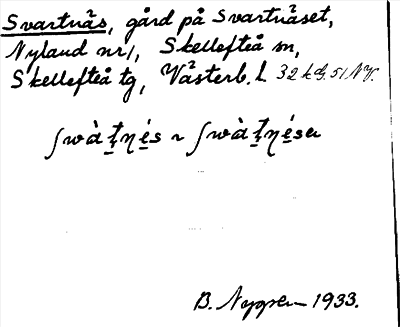 Svartnäs, gård på Svartnäset,
Nyland nr 1, Skellefteå sn,
Skellefteå tg, Västerb. l. 32 kd. 51 NV.
B. Nygren 1933.